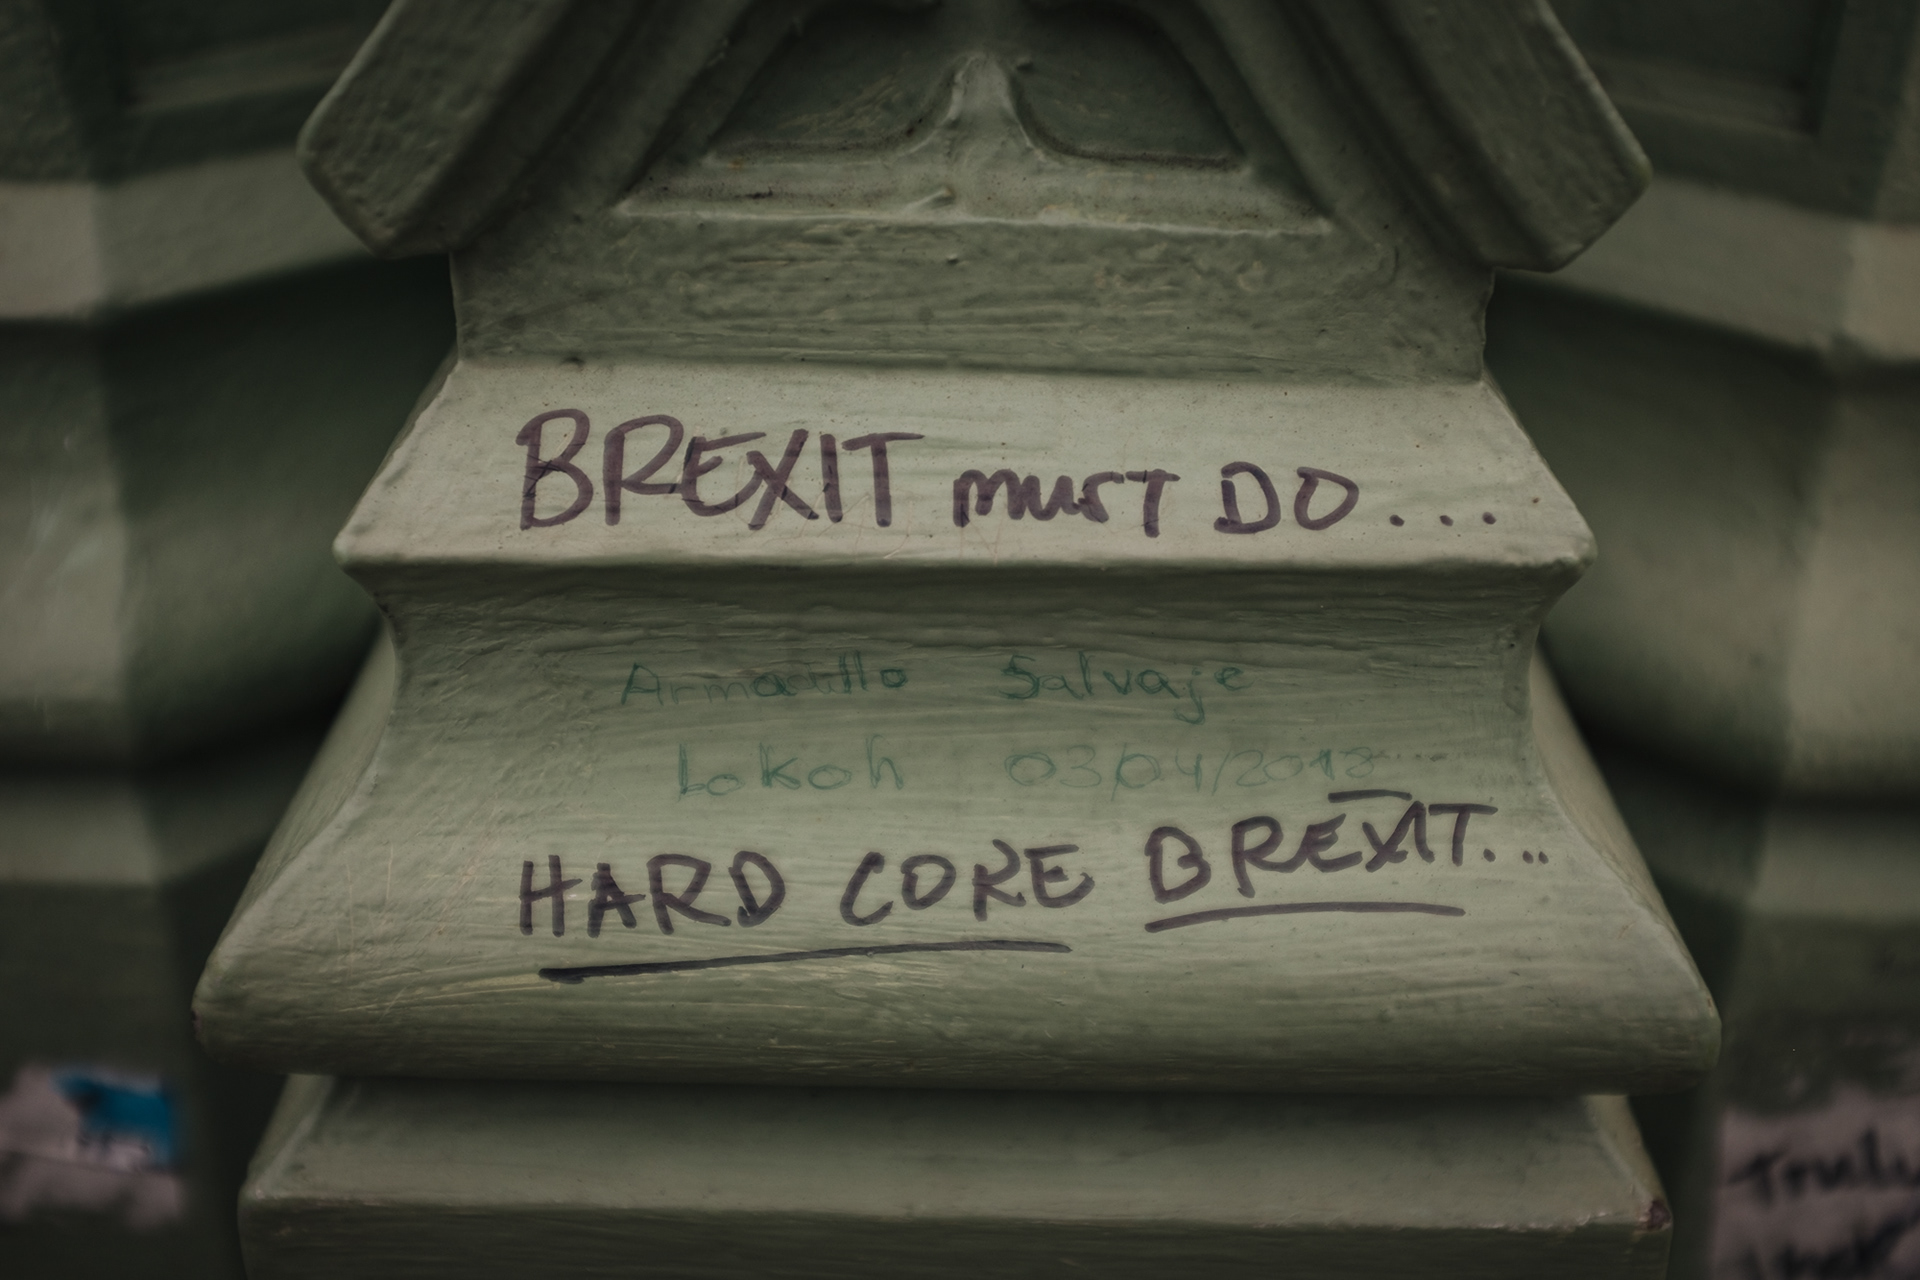 BREXIT must DO...
Armadillo Salvaje
Lokoh 03/04/2018
HARD CORE BREXIT...
Truly